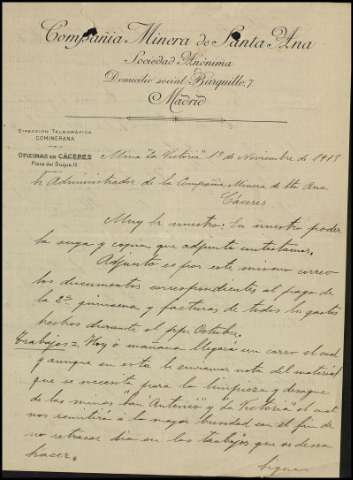 Compañia Minera de Santa Ana
Sociedad Anónima
Domicilio social: Barquillo, 7
Madrid
DIRECCIÓN TELEGRÁFICA
COMINERANA
OFICINAS EN CÁCERES
Plaza del Duque,
Mina "La Victoria" 1º de Noviembre de 191
Sr Administrador de la Compañia Minera de Sta Ana
Cáceres
Muy Sr nuestro: En nuestro poder
la suya y copia que adjunta
Adjunto es por este mismo correo
los documentos correspondientes al pago de
la 2ª quincena y facturas de todos los gastos
hechos durante el ppº Octubre.
Trabajos = Hoy ó mañana llegará un carro el cual
y aunque en este le enviamos nota del material
que se necesita para la limpieza y desague
de las minas "San Antonio" y "La Victoria" el cual
nos remitirá á la mayor brevedad con el fin de
no retrasar dias en los trabajos que se desea
hacer.
Sigue